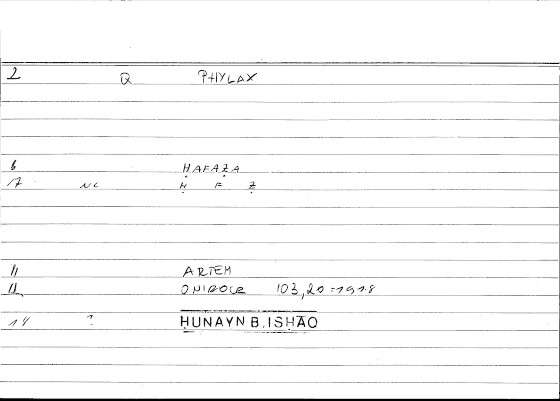 2 Q PHYLAX
6 ḤAFAẒA
7 NC Ḥ F Ẓ
11 ARTEM
12 ONIROCR 103,20-191.8
14 ? ḤUNAYN B. ISḤĀQ